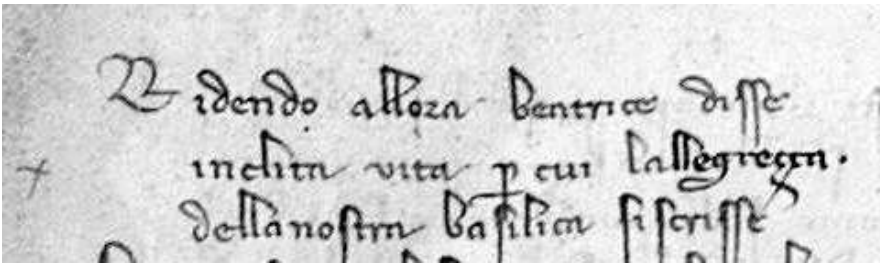 Ridendo allora beatrice disse
inclita vita ꝑ cui lallegreçça.
dellanostra basilica si scrisse